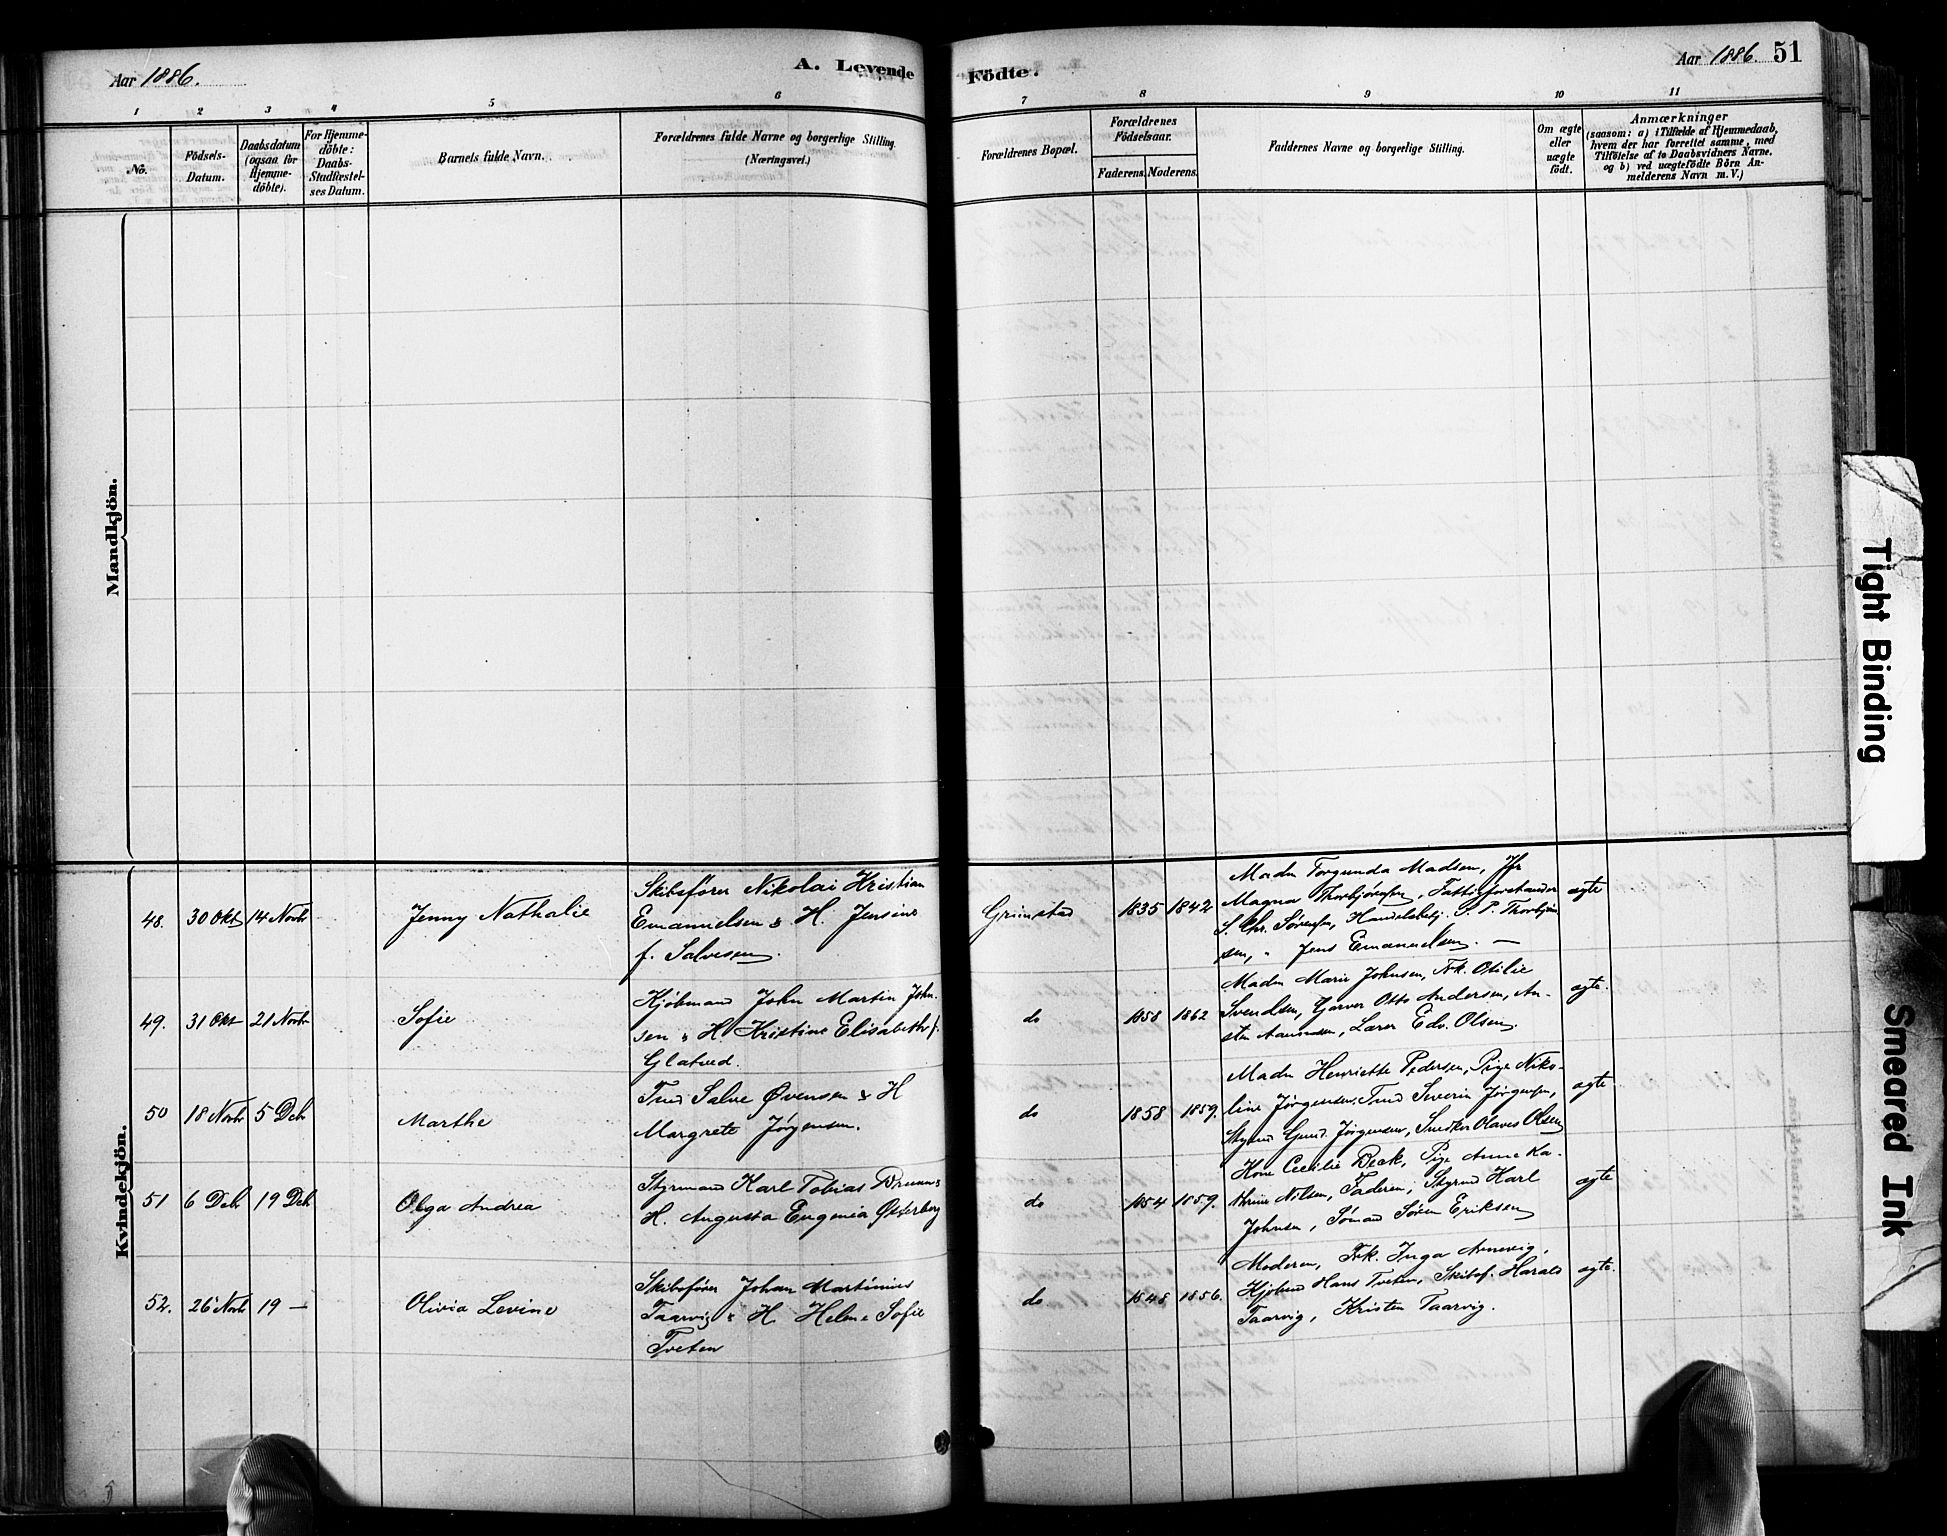 Aar 1886.
A. Levende
Födte.
Aar 1886. 51
1 2 3 4 5 6
7 8 9 10 11
No.
Födsels-
Datum.
Daabsdatum
(ogsaa for
Hjemme-
döbte).
For Hjemme-
döbte:
Daabs-
Stadfæstel-
ses Datum.
Barnets fulde Navn.
Forældrenes fulde Navne og borgerlige Stilling.
(Næringsvei.)
Forældrenes Bopæl.
Forældrenes
Födselsaar.
Faderens. Moderens.
Faddernes Navne og borgerlige Stilling.
Om ægte
eller
uægte
födt.
Anmærkninger
(saasom: a) i Tilfælde af Hjemmedaab,
hvem der har forrettet samme, med
Tilföielse af to Daabsvidners Navne.
og b) ved uægtefödte Börn An-
melderens Navn m. V.)
Mandkjön.
Kvindekjön.
48. 30 Okt 14 Novbr Jenny Nathalie
Skibsfører Nikolai Kristian
Emanuelsen & H. Jensine
f. Salvesen.
Grimstad 1835 1842
Madm Torgunda Madsen, Jfr
Magna Thorbjørnsen, Fattigforstander
S. Chr. Sørensen, Handelsbetj. S. P. Thorbjørn
sen, " Jens Emanuelsen. —
ægte
49. 31 Okt 21 Novbr Sofie
Kjøbmand John Martin John-
sen & H. Kristine Elisabeth f.
Glatved.
do 1858 1862
Madm Marie Johnsen, Frk. Otilie
Svendsen, Garver Otto Andersen, An-
sten Aanonsen, Lærer Edv. Olsen.
ægte.
50 18 Novbr 5 Deb Marthe
Tmd Salve Øvensen & H
Margrete Jørgensen.
do 1858 1859.
Madm Henriette Pedersen, Pige Niko-
line Jørgensen, Tmd Severin Jørgensen,
Styrmd Gund. Jørgensen, Snedker Olaves Olsen
ægte
51 6 Deb 19 Deb Olga Andrea
Styrmand Karl Tobias Bruun &
H. Augusta Eugenia Østerberg
do 1854 1859.
Kone Cecilie Beck, Pige Anne Ka-
thrine Nilsen, Faderen, Styrmd Karl
Johnsen, Sømand Søren Eriksen
ægte
52. 26 Novb 19 — Olivia Levine
Skibsfører Johan Martinius
Taarvig & H. Helene Sofie
Tveten
do 1848 1856.
Moderen, Frk. Inga Arnevig,
Kjøbmd Hans Tveten, Skibsf. Harald
Taarvig, Kristen Taarvig.
ægte.
Tight Binding
Smeared Ink